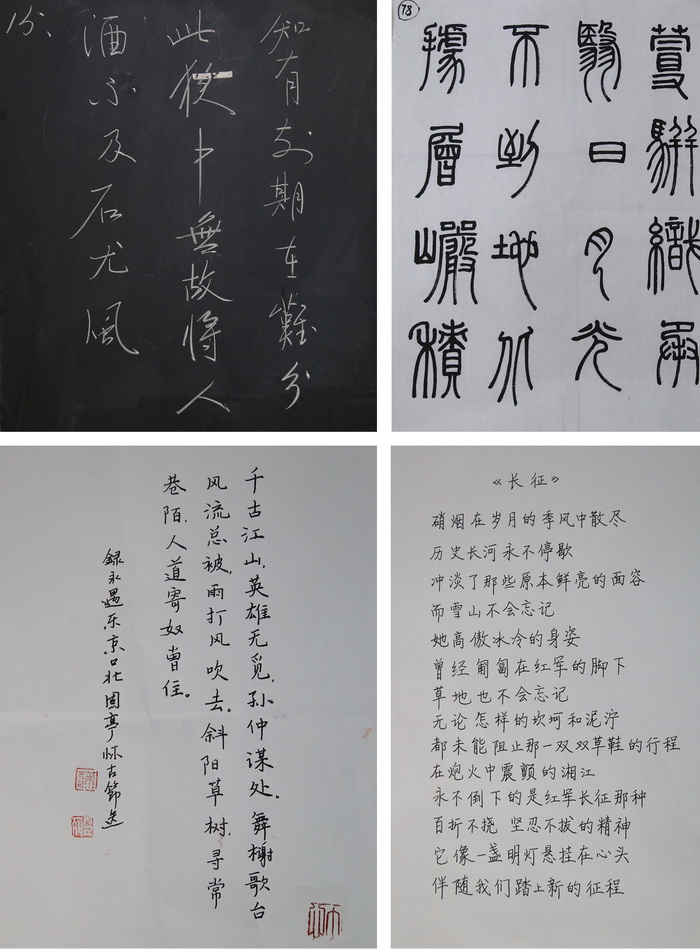 15、
知有前期在難分
此夜中無故将人
酒不及石尤風
78
蔓駢織承
翳日月光
不到地爪
據層巘積
千古江山,英雄无觅,孙仲谋处。舞榭歌台
风流总被,雨打风吹去。斜阳草树,寻常
巷陌,人道寄奴曾住。
録永遇乐京口北固亭怀古節选
《长征》
硝烟在岁月的季风中散尽
历史长河永不停歇
冲淡了那些原本鲜亮的面容
而雪山不会忘记
她高傲冰冷的身姿
曾经匍匐在红军的脚下
草地也不会忘记
无论怎样的坎坷和泥泞
都未能阻止那一双双草鞋的行程
在炮火中震颤的湘江
永不倒下的是红军长征那种
百折不挠 坚忍不拔的精神
它像一盏明灯悬挂在心头
伴随我们踏上新的征程